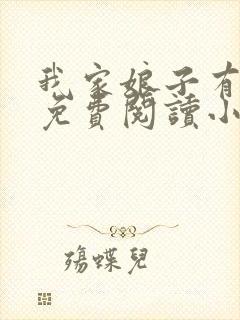 我家娘子有
免費閱讀小
殤蝶兒